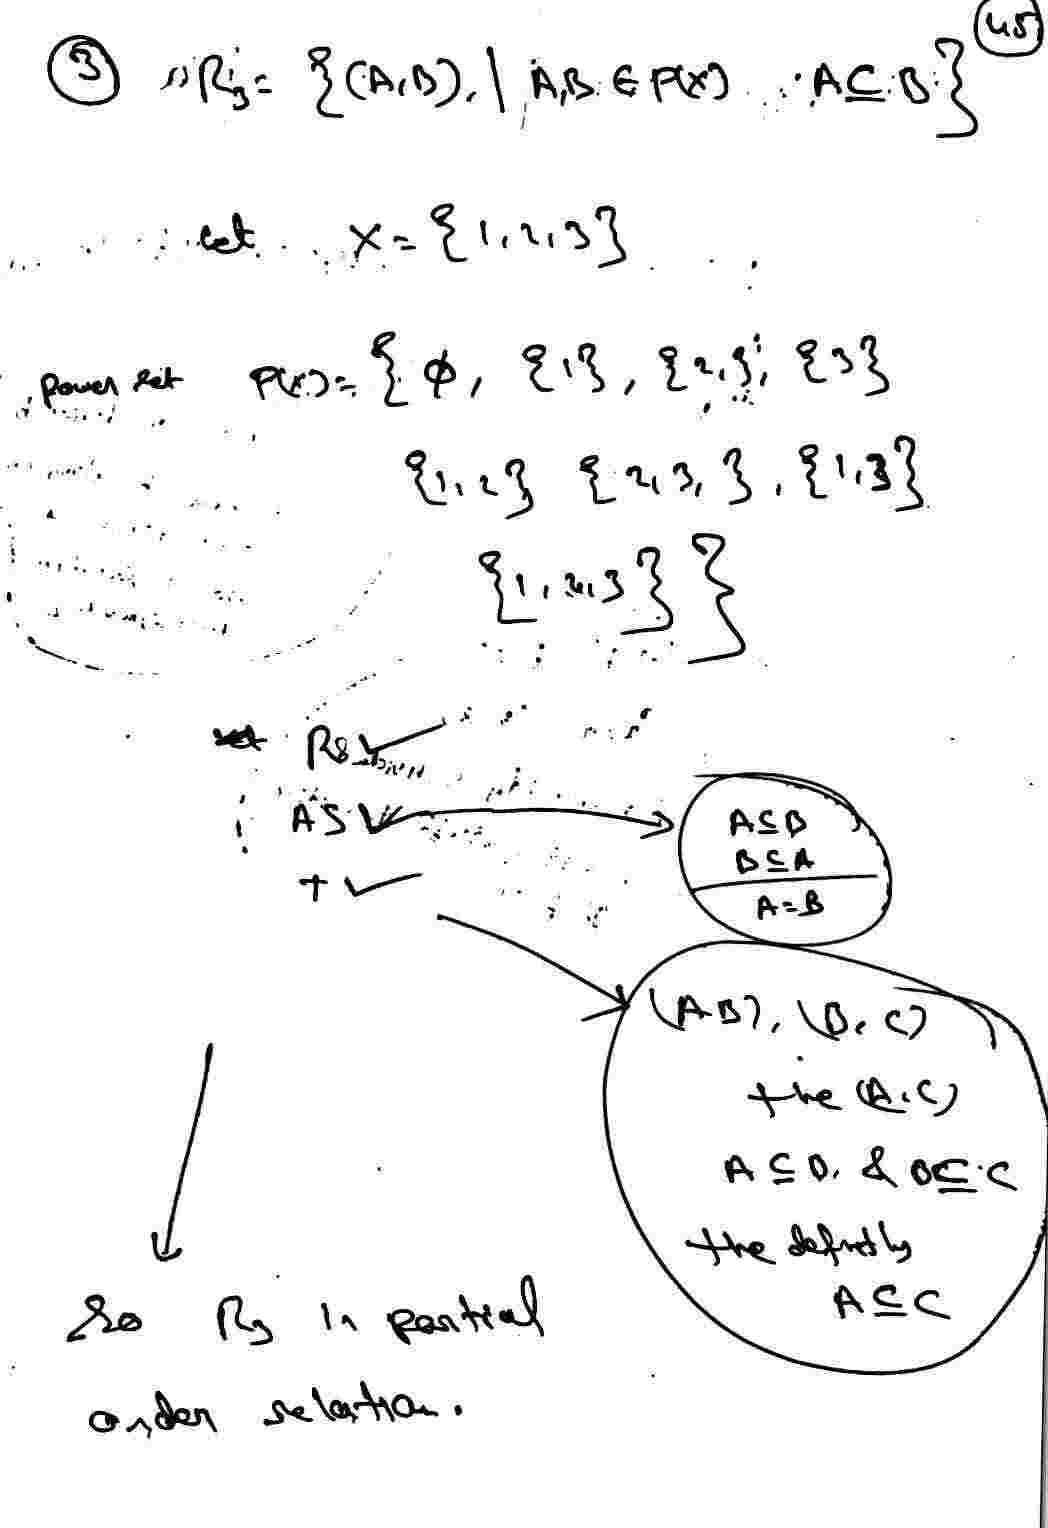 45
③ R₃ = {(A,B) | A,B ∈ P(X) A ⊆ B}
Let X = {1,2,3}
power set P(X) = { ϕ, {1}, {2}, {3}
{1,2} {2,3, }, {1,3}
{1,2,3} }
✓
AS ✓
T ✓
A ⊆ B
B ⊆ A
A = B
(A,B), (B,C)
the (A,C)
A ⊆ B. & B ⊆ C
the definitly
A ⊆ C
So R₃ is partial
order relation.